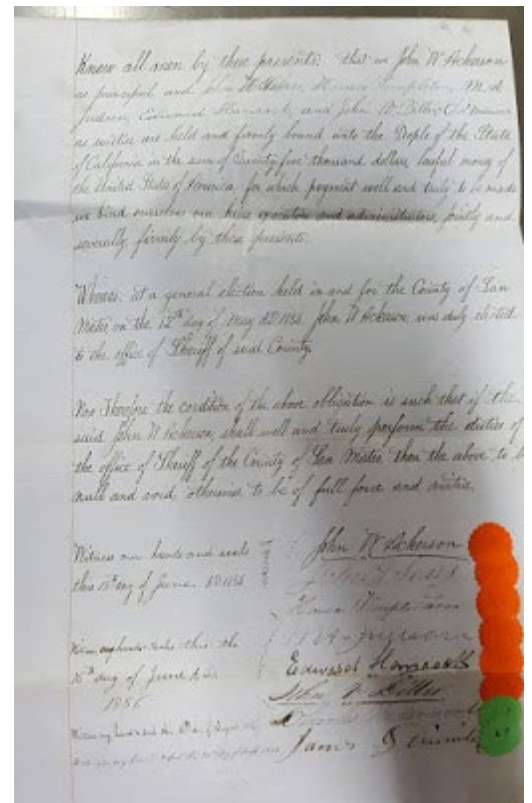 Know all men by these presents: that we John W Ackerson
as principal and John Horace Templeton, M. A.
Judson, Edward Hancock, and John W. Bitter
as sureties are held and firmly bound unto the People of the State
of California in the sum of twenty five thousand dollars, lawful money of
the United States of America, for which payment well and truly to be made
we bind ourselves our heirs executors and administrators, jointly and
severally, firmly by these presents.
Whereas, at a general election held in and for the County of San
Mateo on the 12th day of May AD 1856 John W Ackerson, was duly elected
to the office of Sheriff of said County.
Now Therefore the condition of the above obligation is such that if the
said John W Ackerson, shall well and truly perform the duties of
the office of Sheriff of the County of San Mateo then the above to be
null and void otherwise to be of full force and
Witness our hands and seals
this day of June AD 1856
John W Ackerson
Witness my hand & seal this the
16th day of June A.D.
1856
Edward Hancock
John W Bitter
James